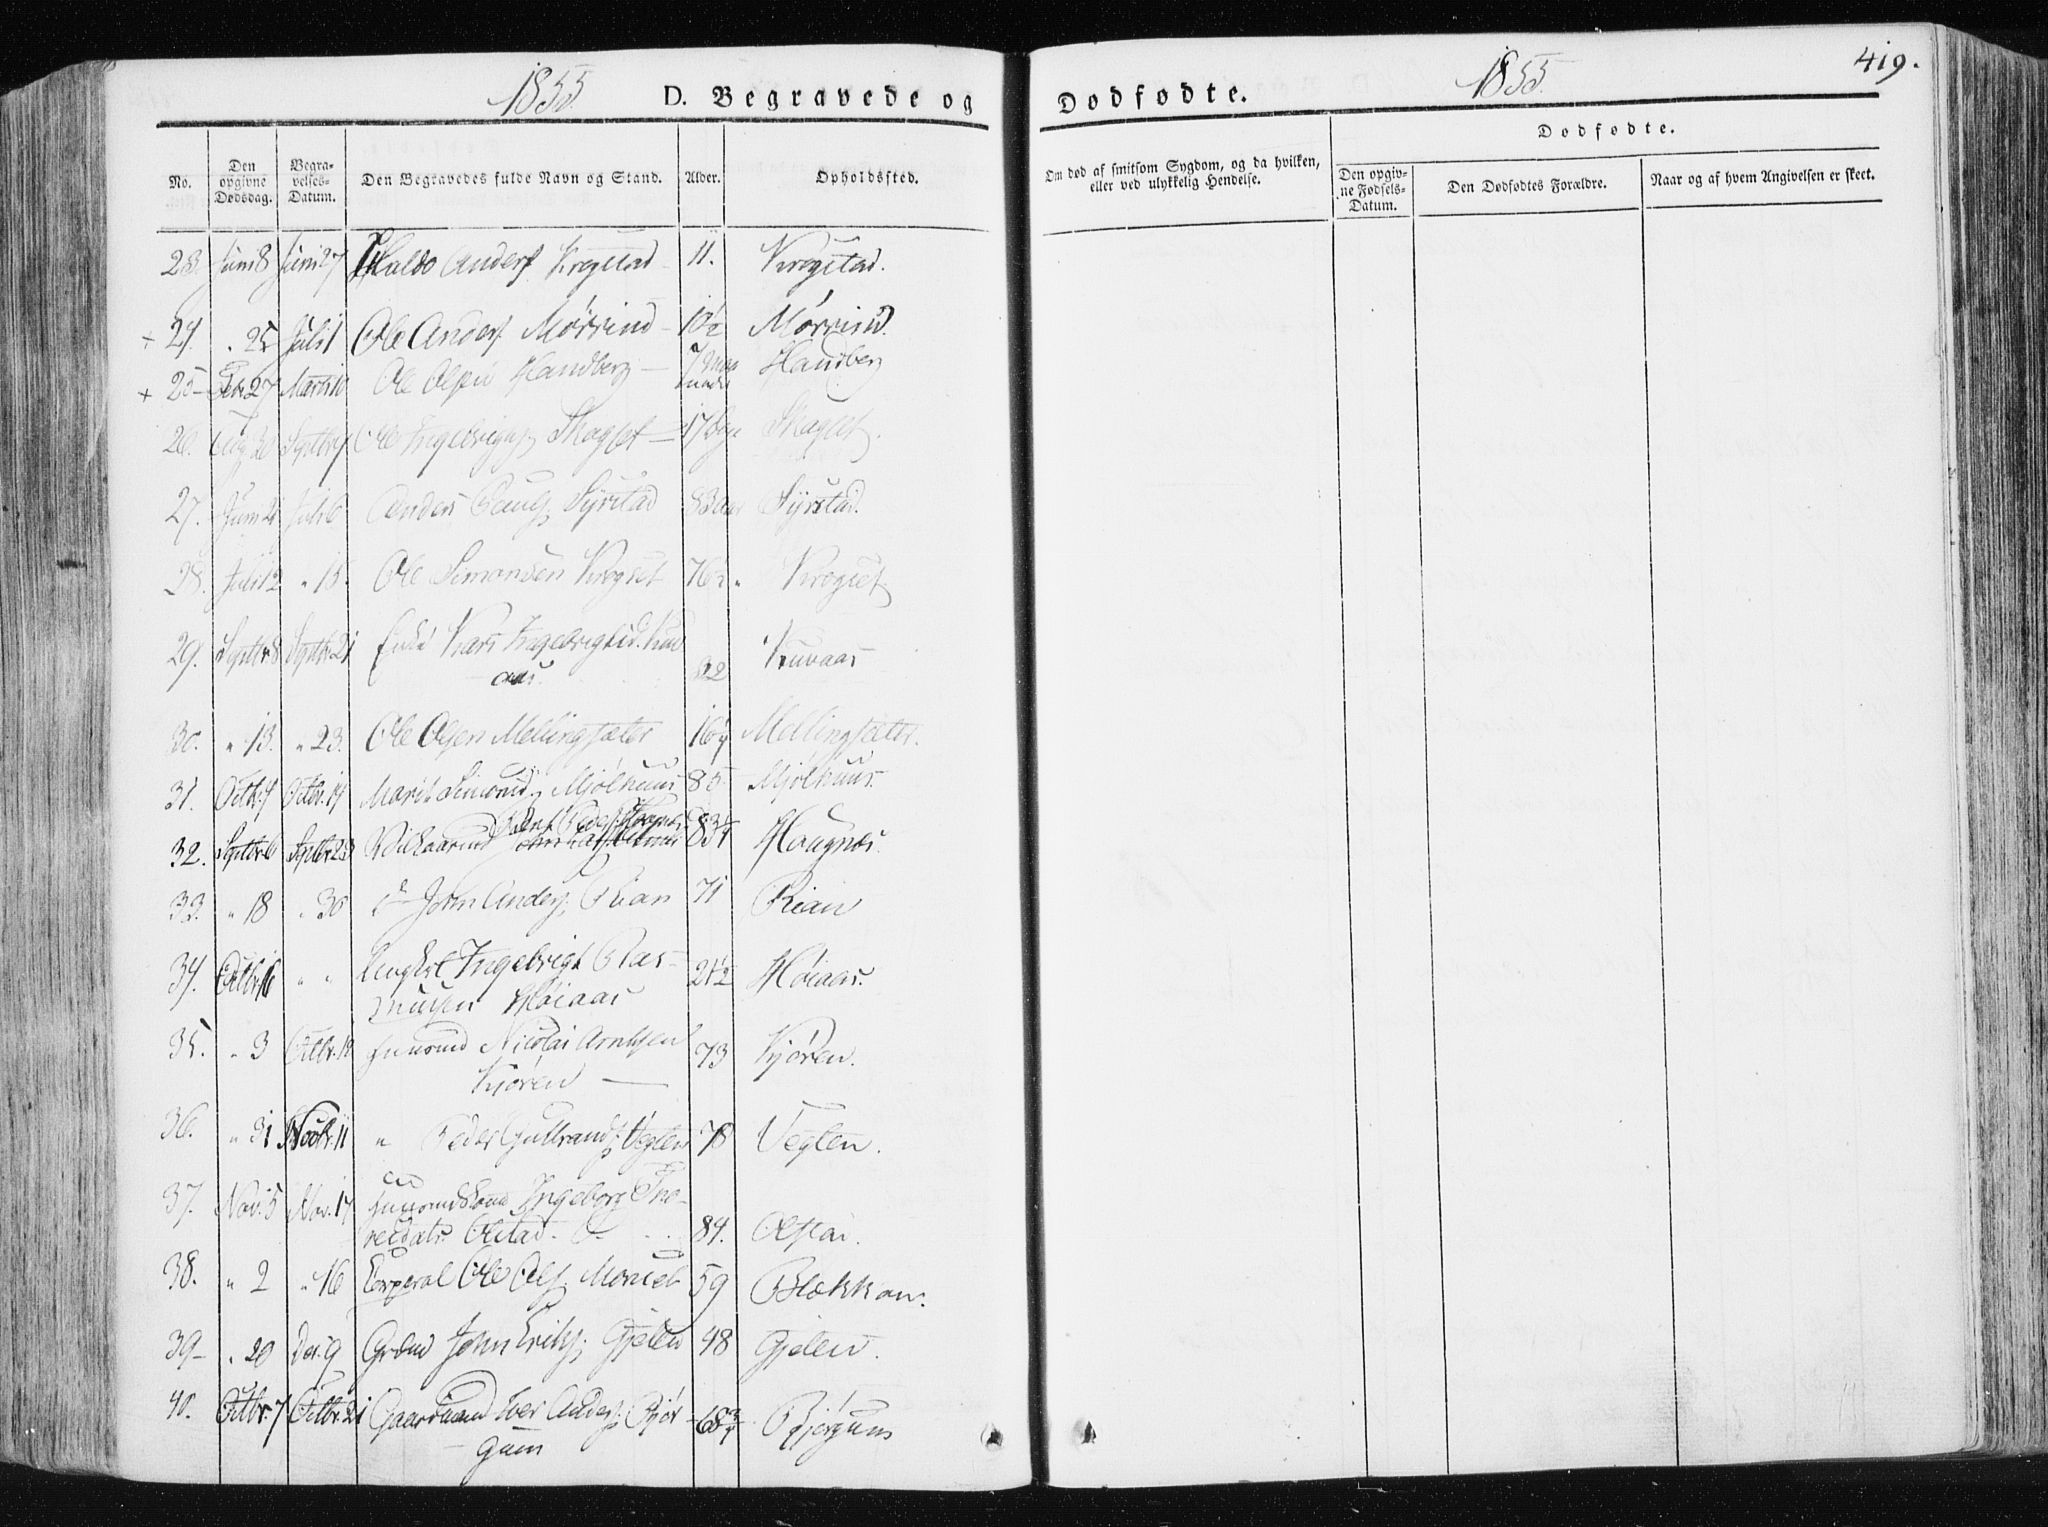 1855. D. Begravede og
Dødfødte. 1855. 419.
No. Den opgivne Dødsdag. Begravelses-Datum. Den Begravedes fulde Navn og Stand. Alder. Opholdssted.
Om død af smitsom Sygdom, og da hvilken, eller ved ulykkelig Hendelse.
Dødfødte.
Den opgivne Fødsels-Datum. Den Dødfødtes Forældre. Naar og af hvem Angivelsen er skeet.
23. Juni 8 Juni 27 Haldo Anders. Krogstad 11. Krogstad.
+ 24. " 25 Juli 1 Ole Anders. Mörrind 10½ Mörrind.
+ 25 Febr. 27 Marts 10 Ole Olsen Handberg 7 Handberg
26. Aug. 20 Septbr. 9 Ole Ingebrigts. Skaglet 17 Skaglet.
27. Juni 21 Juli 6 Anders Pauls. Syrstad 83 aar Syrstad.
28. Juli 12 " 15. Ole Simonsen Krogset 76½ " Krogset
29. Septbr. 8 Septbr. 21 Enke Kari Ingebrigtsd. Kuvaas Kuvaas
30. " 13. " 23. Ole Olsen Mellingsæter Mellingsæter.
31. Octbr. 4 Octbr. 14 Marit Simonsd. Mjølhuus 85 Mjølhuus.
32. Septbr. 6 Septbr. 23 Haugnæs.
33. " 18 " 30 John Anders. Rian 71 Rian
34. Octbr. 16 " " Ingebrigt Rasmusen Høiaas 21½ Høiaas.
35. " 3 Octbr. Nicolai Arntsen Kjøren 73 Kjøren.
36. " 31 Novbr. 11 " Peder Gulbrands. Vegten 78 Vegten.
37. Nov. 5 Nov. 17 Ingeborg Olstad 84. Olstad.
38. " 2 " 16 Corporal Ole Ols. Monset 59 Blokkan.
39 " 20 Dec. 9 John Eriks. Gjelen 48 Gjelen.
40. Octbr. 7 Octbr. 21 Gaardmand Iver Anders. Bjørgum 68¾ Bjørgum